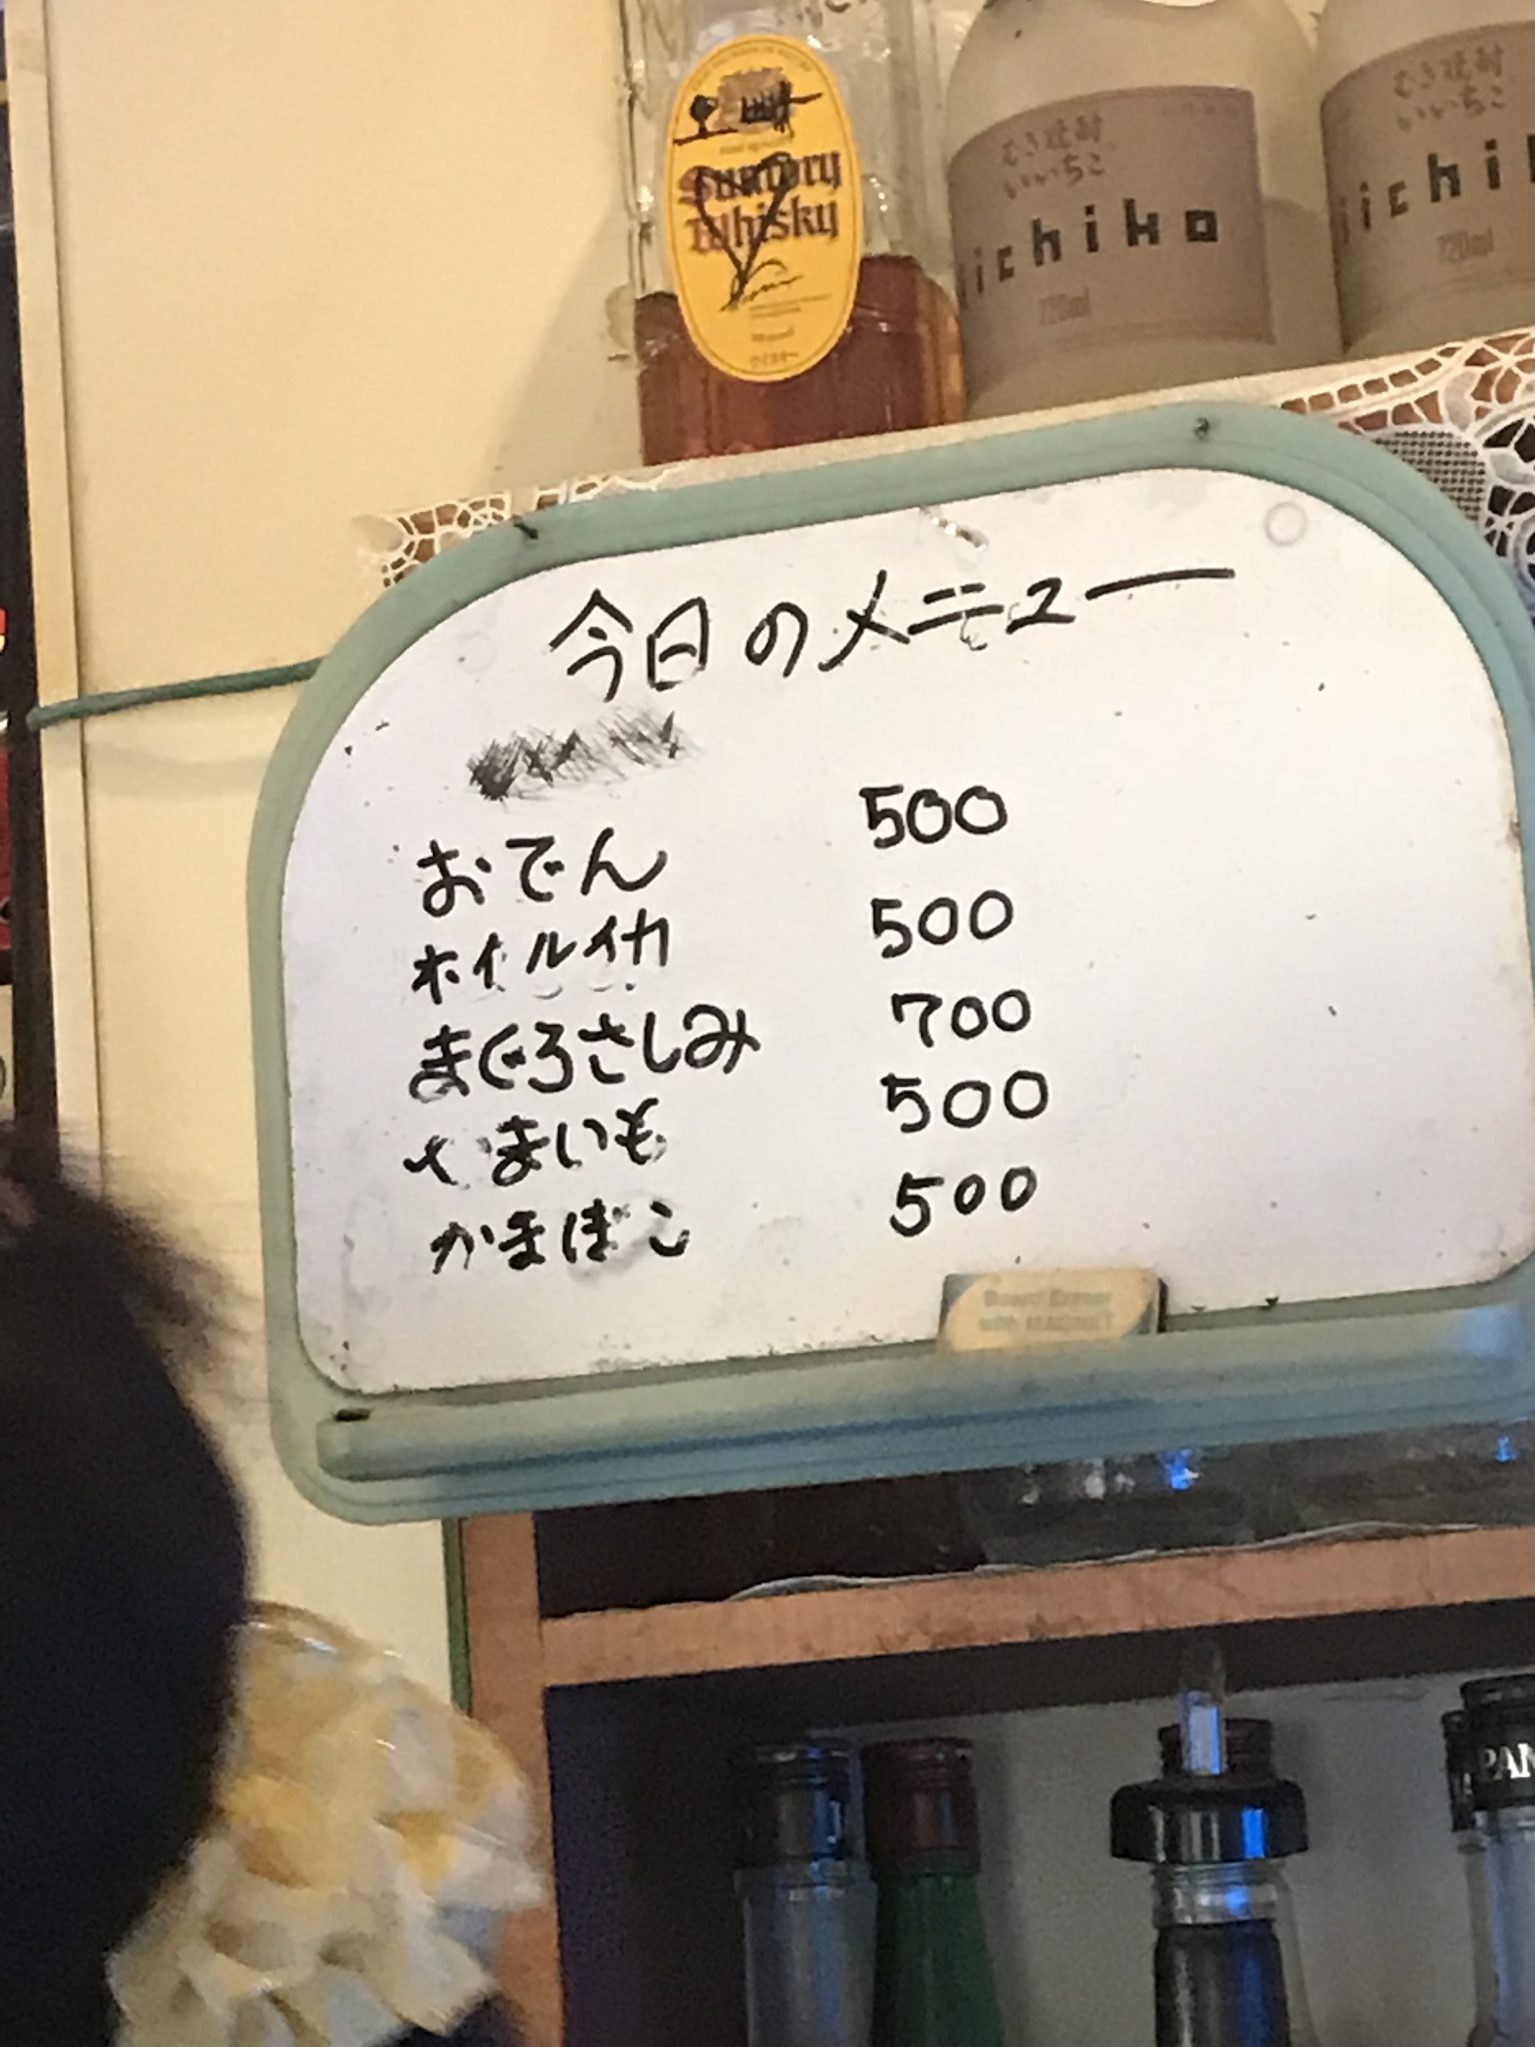 Suntory
Whisky
ウイスキー
むぎ焼酎
いいちこ
iichiko
720ml
むぎ焼酎
いいちこ
iichi
720ml
今日のメニュー
おでん 500
ホイルイカ 500
まぐろさしみ 700
やまいも 500
かまぼこ 500
Board Eraser
with MAGNET
PAN